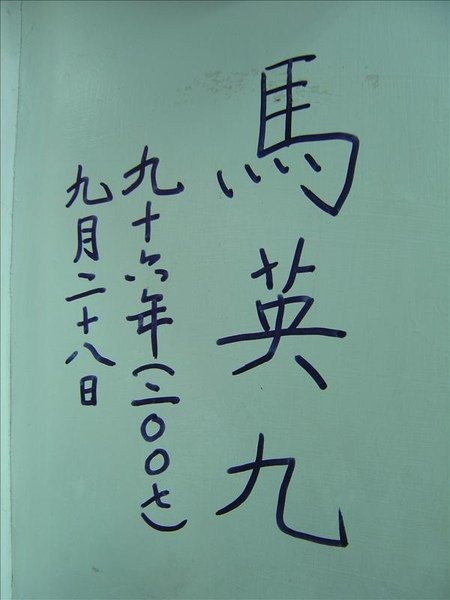 馬英九
九十六年(二〇〇七)
九月二十八日